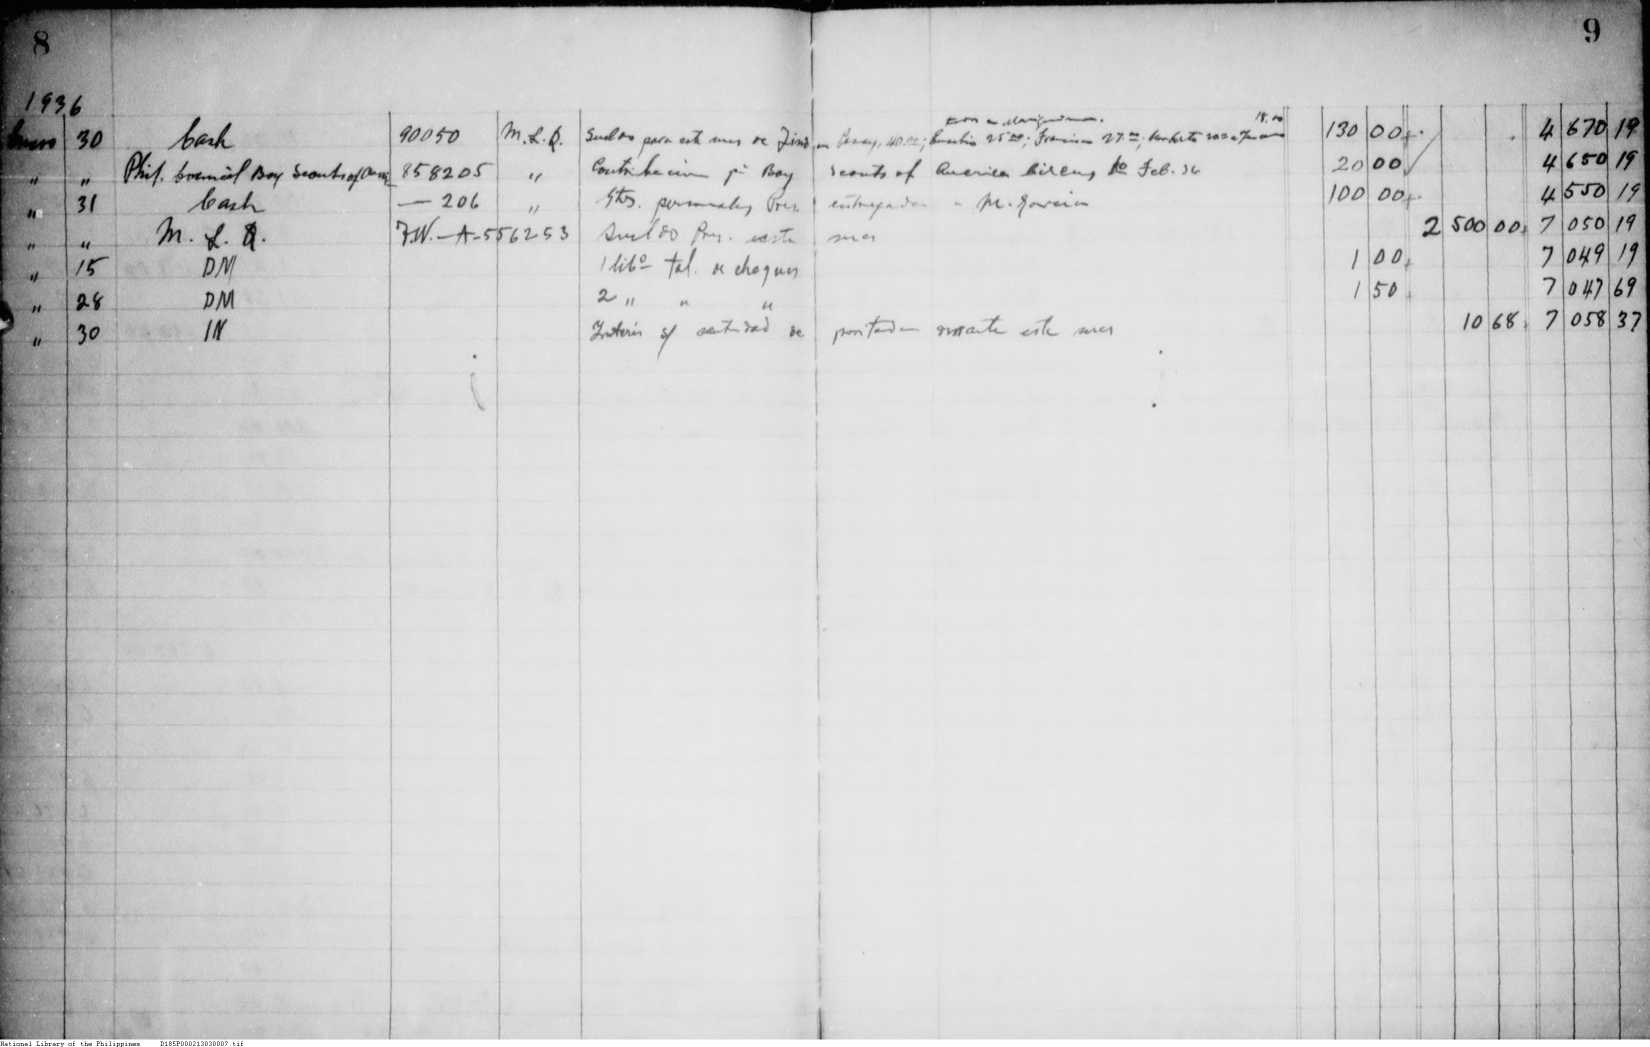 8 9
1936
18.00
Enero 30 Cash 90050 M.L.Q. Sueldos para este mes de 40.00; 25.00; Francisco 27.00; 130 00 4 670 19
" " Phil. Council Boy Scouts of Amer. 858205 " Contribucion pa Boy Scouts of America Circus Feb. 36 20 00 4 650 19
" 31 Cash — 206 " Gtos. personales Pres. entregados a M. 100 00 4 550 19
" " M. L. Q. T.W.-A-556253 Sueldo Pres. este mes 2 500 00 7 050 19
" 15 DM 1 libo tal. de cheques 1 00 7 049 19
" 28 DM 2 " " " 1 50 7 047 69
" 30 IN Interes s/ cantidad depositada durante este mes 10 68 7 058 37
National Library of the Philippines D185P000213030007.tif